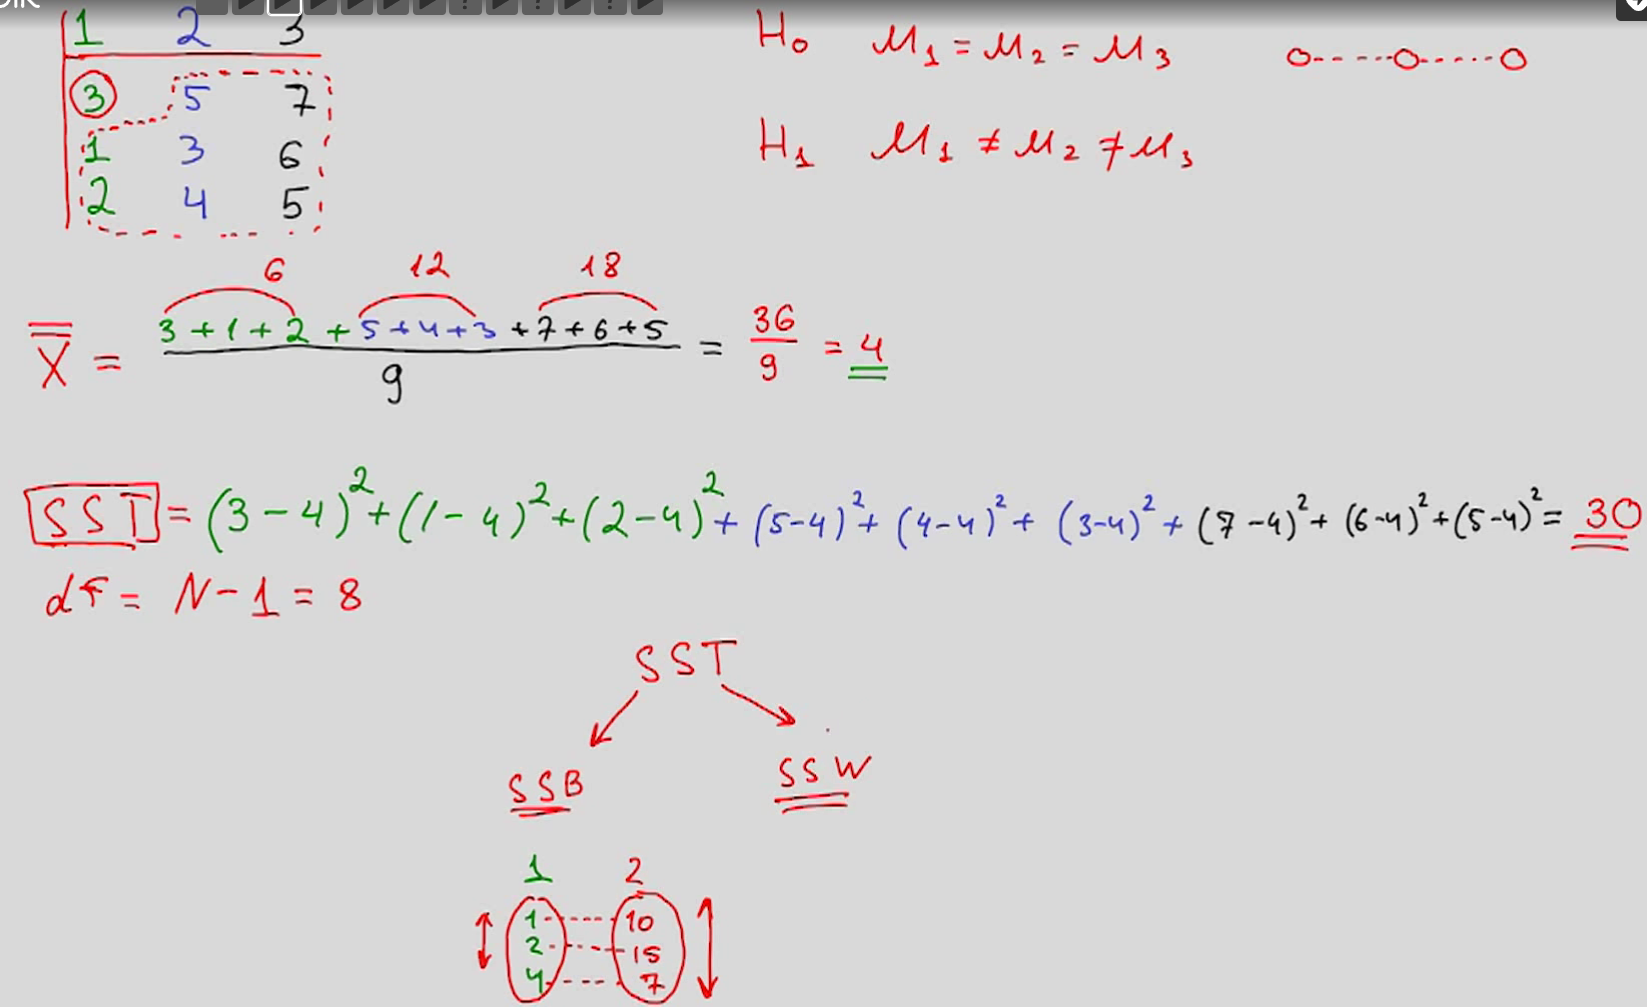 1 2 3
3 5 7
1 3 6
2 4 5
H₀ M₁ = M₂ = M₃
H₁ M₁ ≠ M₂ ≠ M₃
6 12 18
X̿ = (3 + 1 + 2 + 5 + 4 + 3 + 7 + 6 + 5) / 9 = 36 / 9 = 4
SST = (3 - 4)² + (1 - 4)² + (2 - 4)² + (5 - 4)² + (4 - 4)² + (3 - 4)² + (7 - 4)² + (6 - 4)² + (5 - 4)² = 30
dF = N - 1 = 8
SST
SSB SSW
1 2
1 10
2 15
4 7